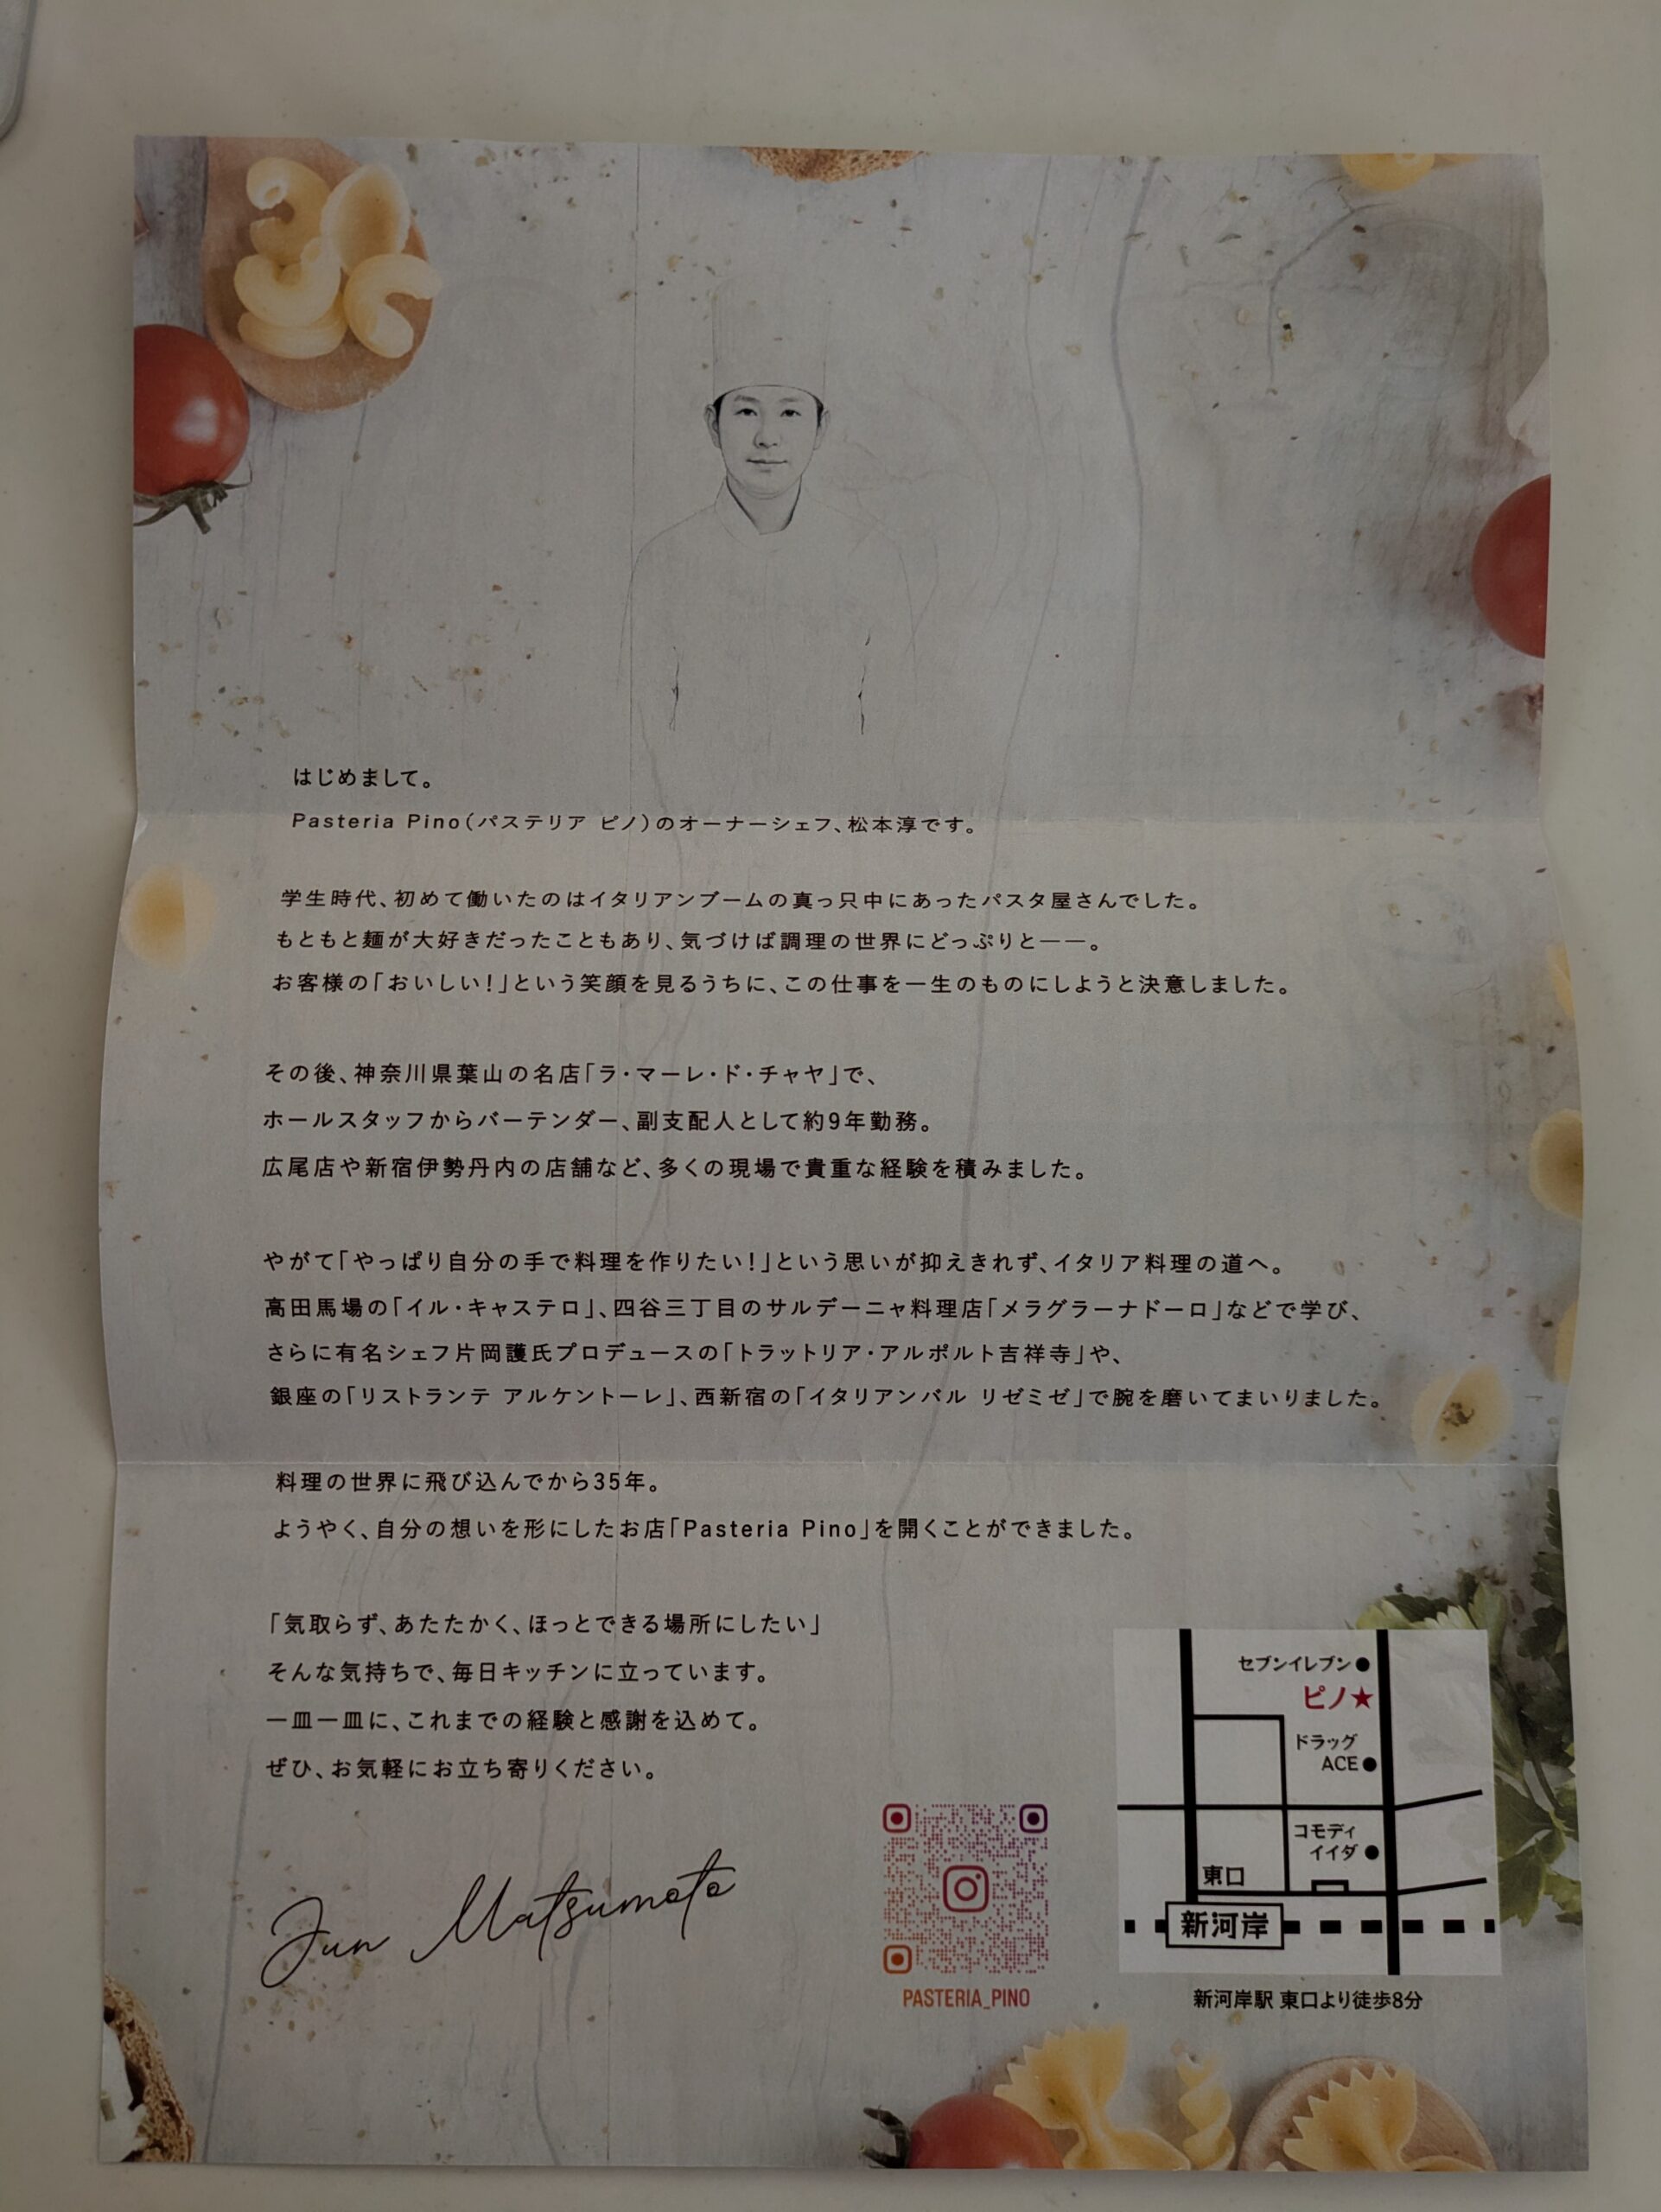 はじめまして。
Pasteria Pino（パステリア ピノ）のオーナーシェフ、松本淳です。
学生時代、初めて働いたのはイタリアンブームの真っ只中にあったパスタ屋さんでした。
もともと麺が大好きだったこともあり、気づけば調理の世界にどっぷりと——。
お客様の「おいしい！」という笑顔を見るうちに、この仕事を一生のものにしようと決意しました。
その後、神奈川県葉山の名店「ラ・マーレ・ド・チャヤ」で、
ホールスタッフからバーテンダー、副支配人として約9年勤務。
広尾店や新宿伊勢丹内の店舗など、多くの現場で貴重な経験を積みました。
やがて「やっぱり自分の手で料理を作りたい！」という思いが抑えきれず、イタリア料理の道へ。
高田馬場の「イル・キャステロ」、四谷三丁目のサルデーニャ料理店「メラグラーナドーロ」などで学び、
さらに有名シェフ片岡護氏プロデュースの「トラットリア・アルポルト吉祥寺」や、
銀座の「リストランテ アルケントーレ」、西新宿の「イタリアンバル リゼミゼ」で腕を磨いてまいりました。
料理の世界に飛び込んでから35年。
ようやく、自分の想いを形にしたお店「Pasteria Pino」を開くことができました。
「気取らず、あたたかく、ほっとできる場所にしたい」
そんな気持ちで、毎日キッチンに立っています。
一皿一皿に、これまでの経験と感謝を込めて。
ぜひ、お気軽にお立ち寄りください。
Jun Matsumoto
PASTERIA_PINO
セブンイレブン
ピノ★
ドラッグ
ACE
コモディ
イイダ
東口
新河岸
新河岸駅 東口より徒歩8分